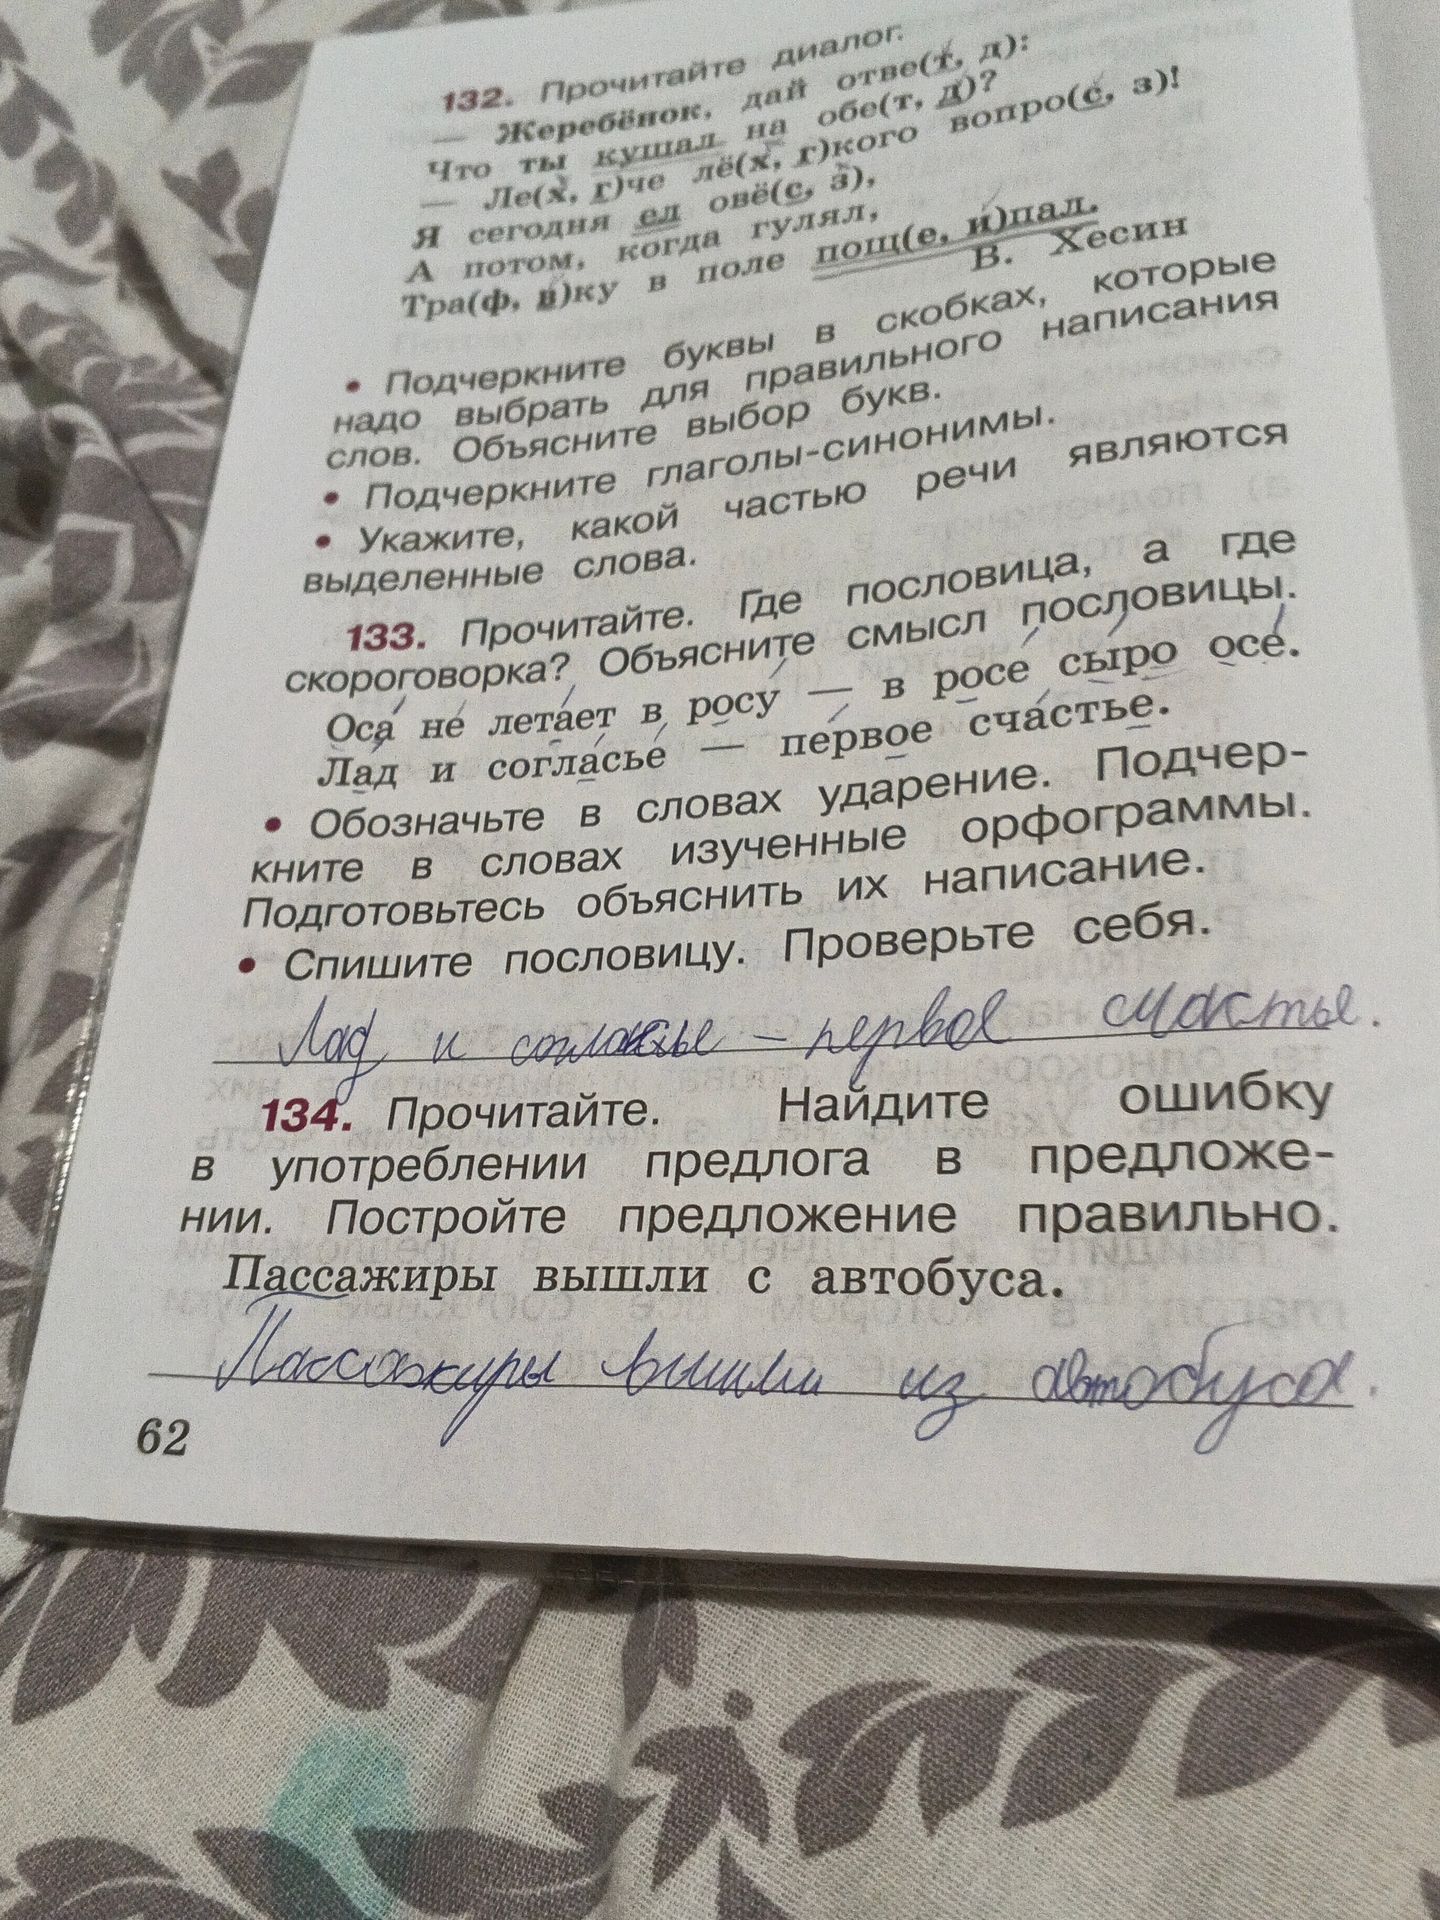 132. Прочитайте диалог.
— Жеребёнок, дай отве(т, д):
Что ты кушал на обе(т, д)?
— Ле(х, г)че лё(х, г)кого вопро(с, з)!
Я сегодня ел овё(с, з),
А потом, когда гулял,
Тра(ф, в)ку в поле пощ(е, и)пал.
В. Хесин
• Подчеркните буквы в скобках, которые
надо выбрать для правильного написания
слов. Объясните выбор букв.
• Подчеркните глаголы-синонимы.
• Укажите, какой частью речи являются
выделенные слова.
133. Прочитайте. Где пословица, а где
скороговорка? Объясните смысл пословицы.
Оса́ не́ лета́ет в росу́ — в росе́ сы́ро осе́.
Ла́д и согла́сье́ — пе́рвое сча́стье.
• Обозначьте в словах ударение. Подчер-
кните в словах изученные орфограммы.
Подготовьтесь объяснить их написание.
• Спишите пословицу. Проверьте себя.
Лад и согласье – первое счастье.
134. Прочитайте. Найдите ошибку
в употреблении предлога в предложе-
нии. Постройте предложение правильно.
Пассажиры вышли с автобуса.
Пассажиры вышли из автобуса.
62